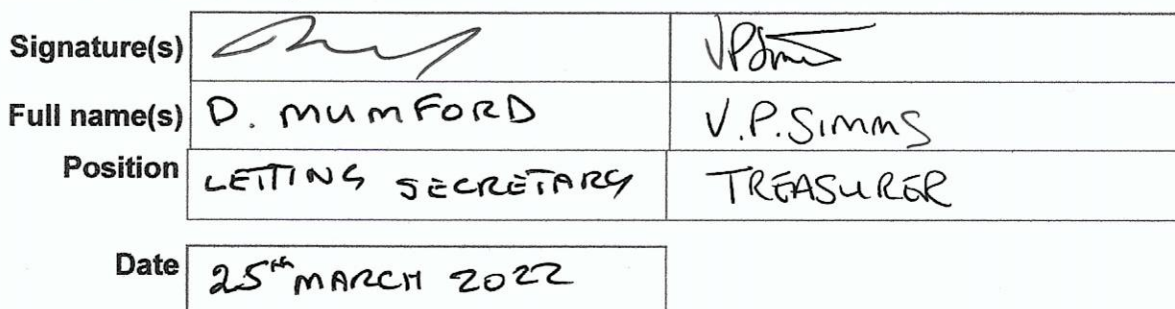 Signature(s)
Full name(s) D. MUMFORD V.P. SIMMS
Position LETTING SECRETARY TREASURER
Date 25th MARCH 2022